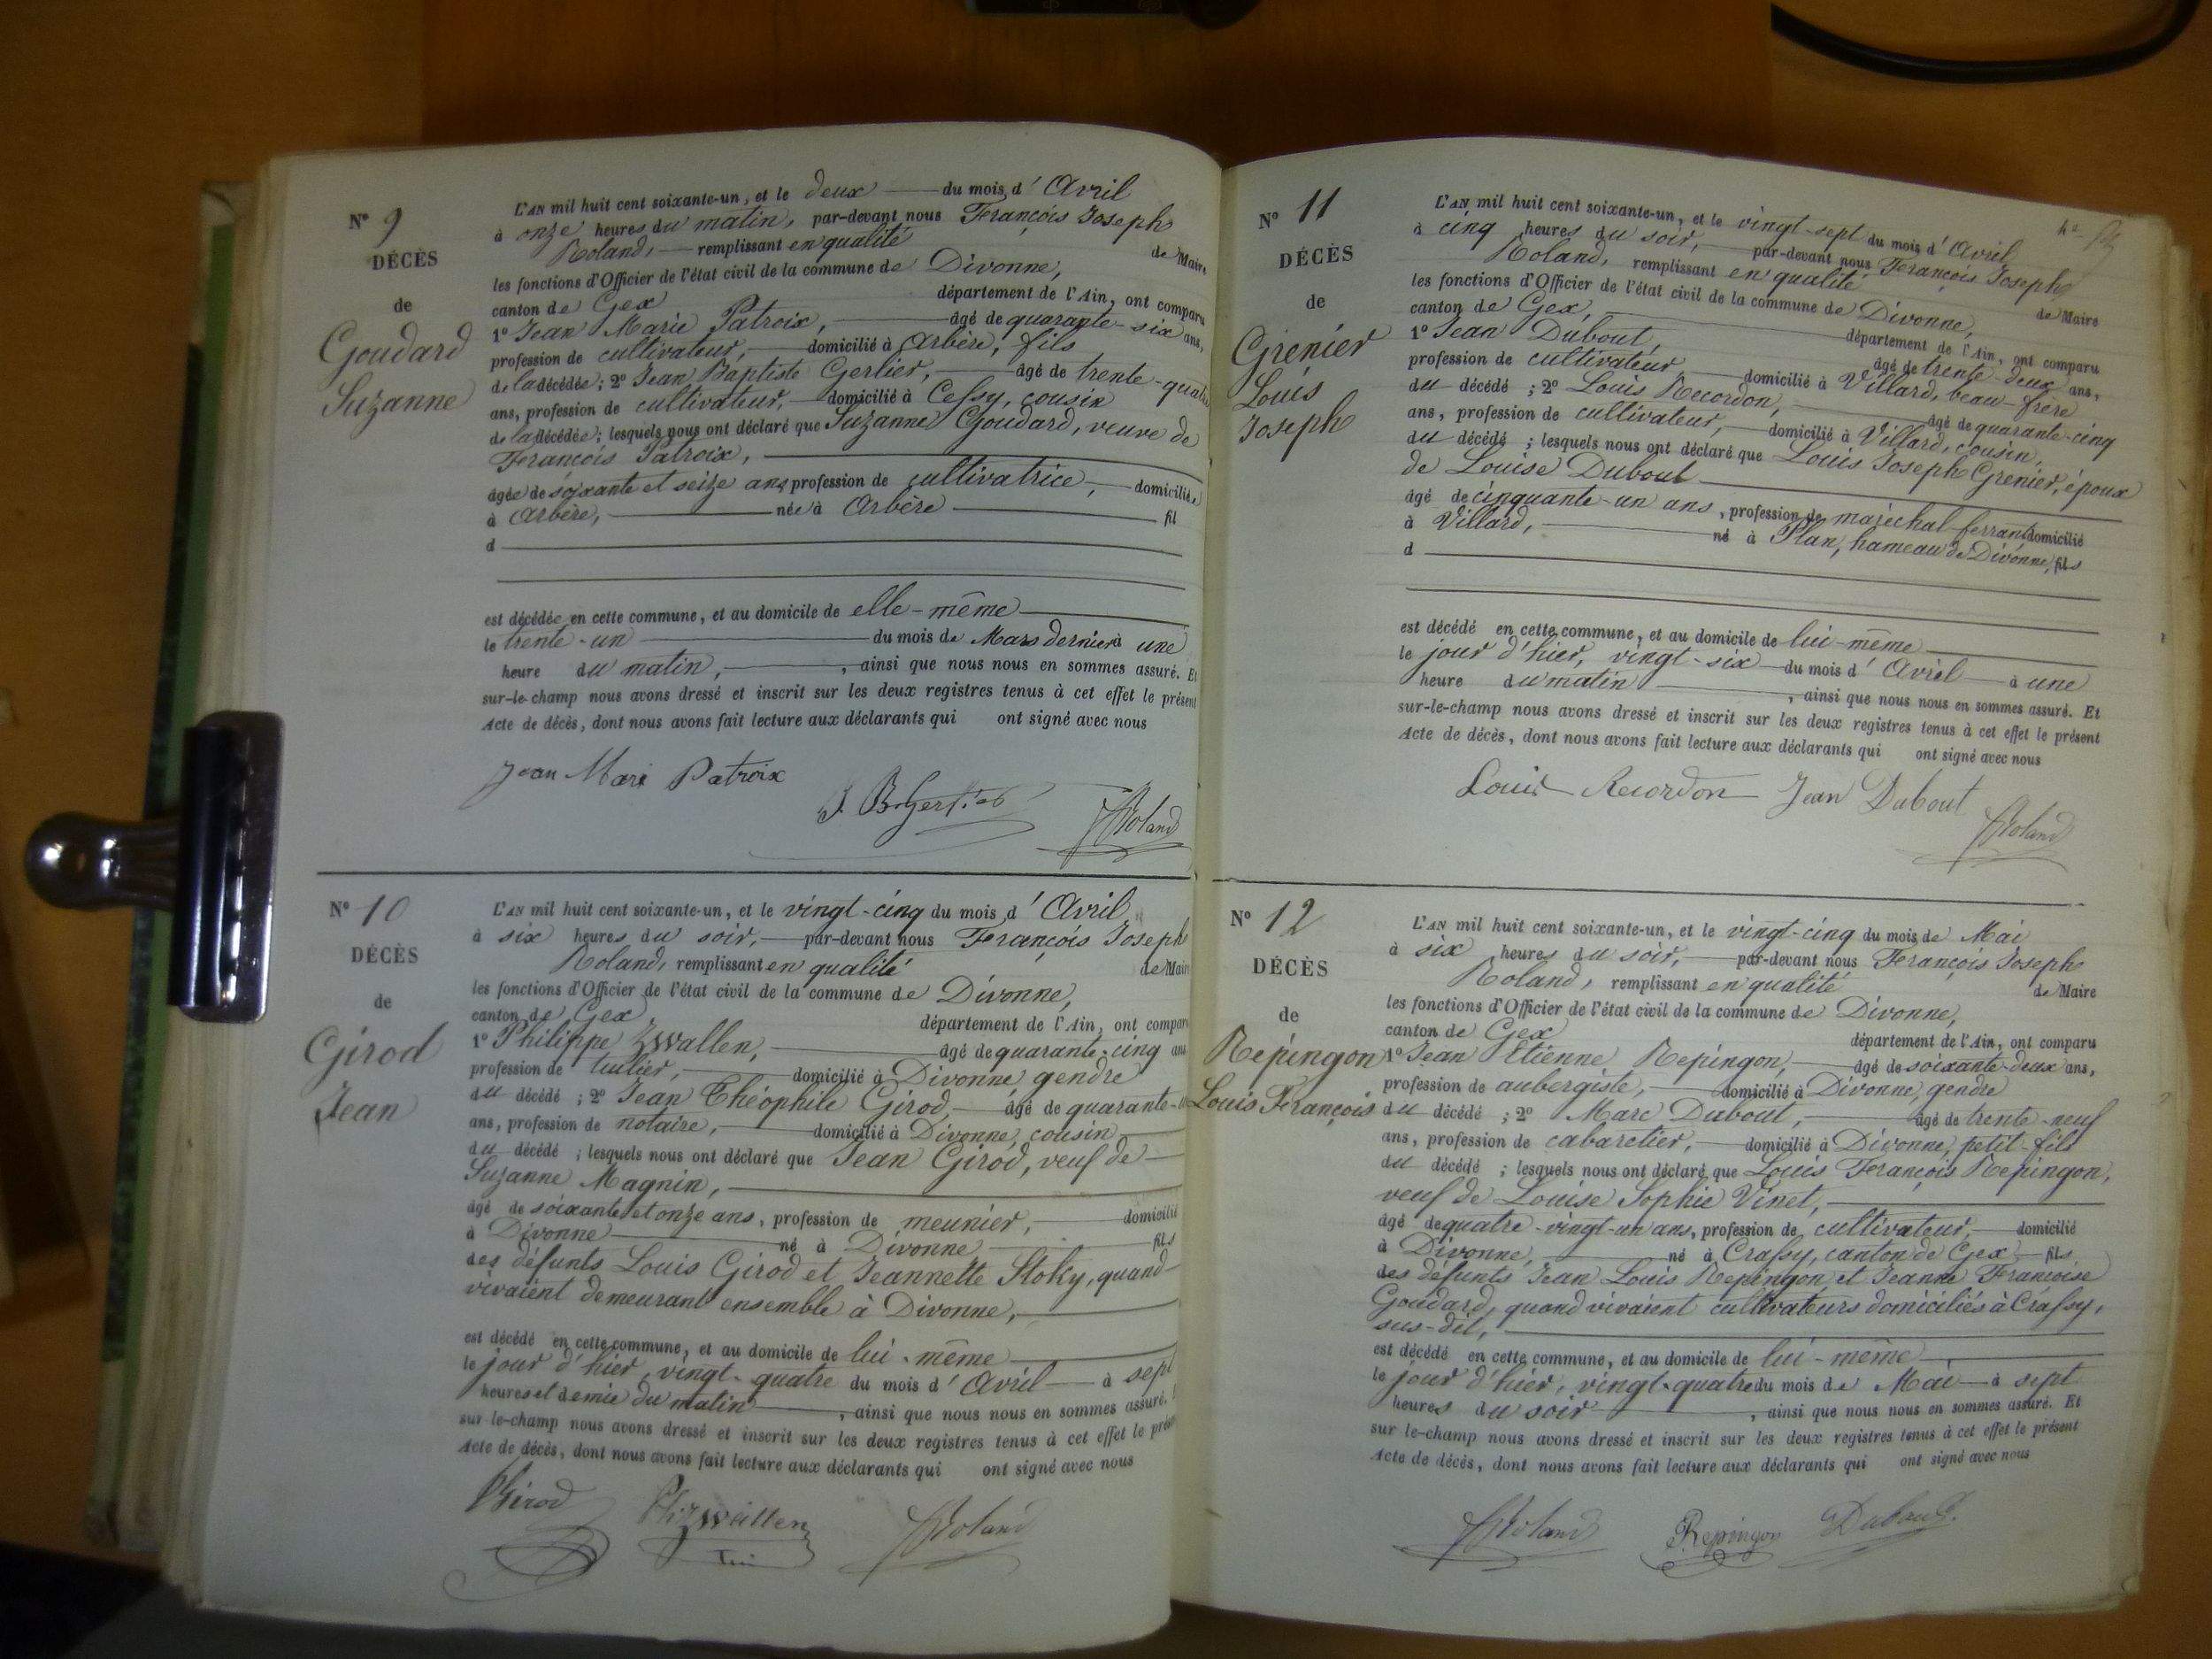 N° 9
DÉCÈS
de
Goudard
Suzanne
L'AN mil huit cent soixante-un, et le deux du mois d' Avril
à onze heures du matin, par-devant nous François Joseph
Roland, remplissant en qualité de Maire
les fonctions d'Officier de l'état civil de la commune de Divonne,
canton de Gex département de l'Ain, ont comparu
1° Jean Marie Patroix, âgé de quarante-six ans,
profession de cultivateur, domicilié à Arbère, fils
de la décédée ; 2° Jean Baptiste Gerlier, âgé de trente-quatre
ans, profession de cultivateur, domicilié à Cessy, cousin
de la décédée ; lesquels nous ont déclaré que Suzanne Goudard, veuve de
François Patroix,
âgée de soixante et seize ans, profession de cultivatrice, domiciliée
à Arbère, née à Arbère fil
d
est décédée en cette commune, et au domicile de elle-même
le trente-un du mois de Mars dernier à une
heure du matin, , ainsi que nous nous en sommes assuré. Et
sur-le-champ nous avons dressé et inscrit sur les deux registres tenus à cet effet le présent
Acte de décès, dont nous avons fait lecture aux déclarants qui ont signé avec nous
Jean Mari Patroix
J. B. Gerlier
Roland
N° 10
DÉCÈS
de
Girod
Jean
L'AN mil huit cent soixante-un, et le vingt-cinq du mois d' Avril
à six heures du soir, par-devant nous François Joseph
Roland, remplissant en qualité de Maire
les fonctions d'Officier de l'état civil de la commune de Divonne,
canton de Gex département de l'Ain, ont comparu
1° Philippe Zwallen, âgé de quarante-cinq ans
profession de tuilier, domicilié à Divonne gendre
du décédé ; 2° Jean Théophile Girod, âgé de quarante-
ans, profession de notaire, domicilié à Divonne, cousin
du décédé ; lesquels nous ont déclaré que Jean Girod, veuf de
Suzanne Magnin,
âgé de soixante et onze ans, profession de meunier, domicilié
à Divonne né à Divonne fils
des défunts Louis Girod et Jeannette Stoky, quand
vivaient demeurant ensemble à Divonne,
est décédé en cette commune, et au domicile de lui-même
le jour d'hier, vingt-quatre du mois d' Avril à sept
heures et demie du matin , ainsi que nous nous en sommes assuré.
sur-le-champ nous avons dressé et inscrit sur les deux registres tenus à cet effet le présent
Acte de décès, dont nous avons fait lecture aux déclarants qui ont signé avec nous
Girod
Zwallen
Roland
N° 11
DÉCÈS
de
Grenier
Louis
Joseph
L'AN mil huit cent soixante-un, et le vingt-sept du mois d' Avril
à cinq heures du soir, par-devant nous François Joseph
Roland, remplissant en qualité de Maire
les fonctions d'Officier de l'état civil de la commune de Divonne,
canton de Gex, département de l'Ain, ont comparu
1° Jean Dubout, âgé de trente-deux ans,
profession de cultivateur, domicilié à Villard, beau-frère
du décédé ; 2° Louis Recordon, âgé de quarante-cinq
ans, profession de cultivateur, domicilié à Villard, cousin
du décédé ; lesquels nous ont déclaré que Louis Joseph Grenier, époux
de Louise Dubout
âgé de cinquante-un ans, profession de maréchal-ferrant domicilié
à Villard, né à Plan, hameau de Divonne, fils
d
est décédé en cette commune, et au domicile de lui-même
le jour d'hier, vingt-six du mois d' Avril à une
heure du matin , ainsi que nous nous en sommes assuré. Et
sur-le-champ nous avons dressé et inscrit sur les deux registres tenus à cet effet le présent
Acte de décès, dont nous avons fait lecture aux déclarants qui ont signé avec nous
Louis Recordon Jean Dubout
Roland
N° 12
DÉCÈS
de
Repingon
Louis François
L'AN mil huit cent soixante-un, et le vingt-cinq du mois de Mai
à six heures du soir, par-devant nous François Joseph
Roland, remplissant en qualité de Maire
les fonctions d'Officier de l'état civil de la commune de Divonne,
canton de Gex département de l'Ain, ont comparu
1° Jean Etienne Repingon, âgé de soixante-deux ans,
profession de aubergiste, domicilié à Divonne, gendre
du décédé ; 2° Marc Dubout, âgé de trente-neuf
ans, profession de cabaretier, domicilié à Divonne, petit-fils
du décédé ; lesquels nous ont déclaré que Louis François Repingon,
veuf de Louise Sophie Vinet,
âgé de quatre-vingt-un ans, profession de cultivateur, domicilié
à Divonne, né à Crassy, canton de Gex fils
des défunts Jean Louis Repingon et Jeanne Françoise
Goudard, quand vivaient cultivateurs domiciliés à Crassy,
sus-dit,
est décédé en cette commune, et au domicile de lui-même
le jour d'hier, vingt-quatre du mois de Mai à sept
heures du soir , ainsi que nous nous en sommes assuré. Et
sur le-champ nous avons dressé et inscrit sur les deux registres tenus à cet effet le présent
Acte de décès, dont nous avons fait lecture aux déclarants qui ont signé avec nous
Roland Repingon Dubout